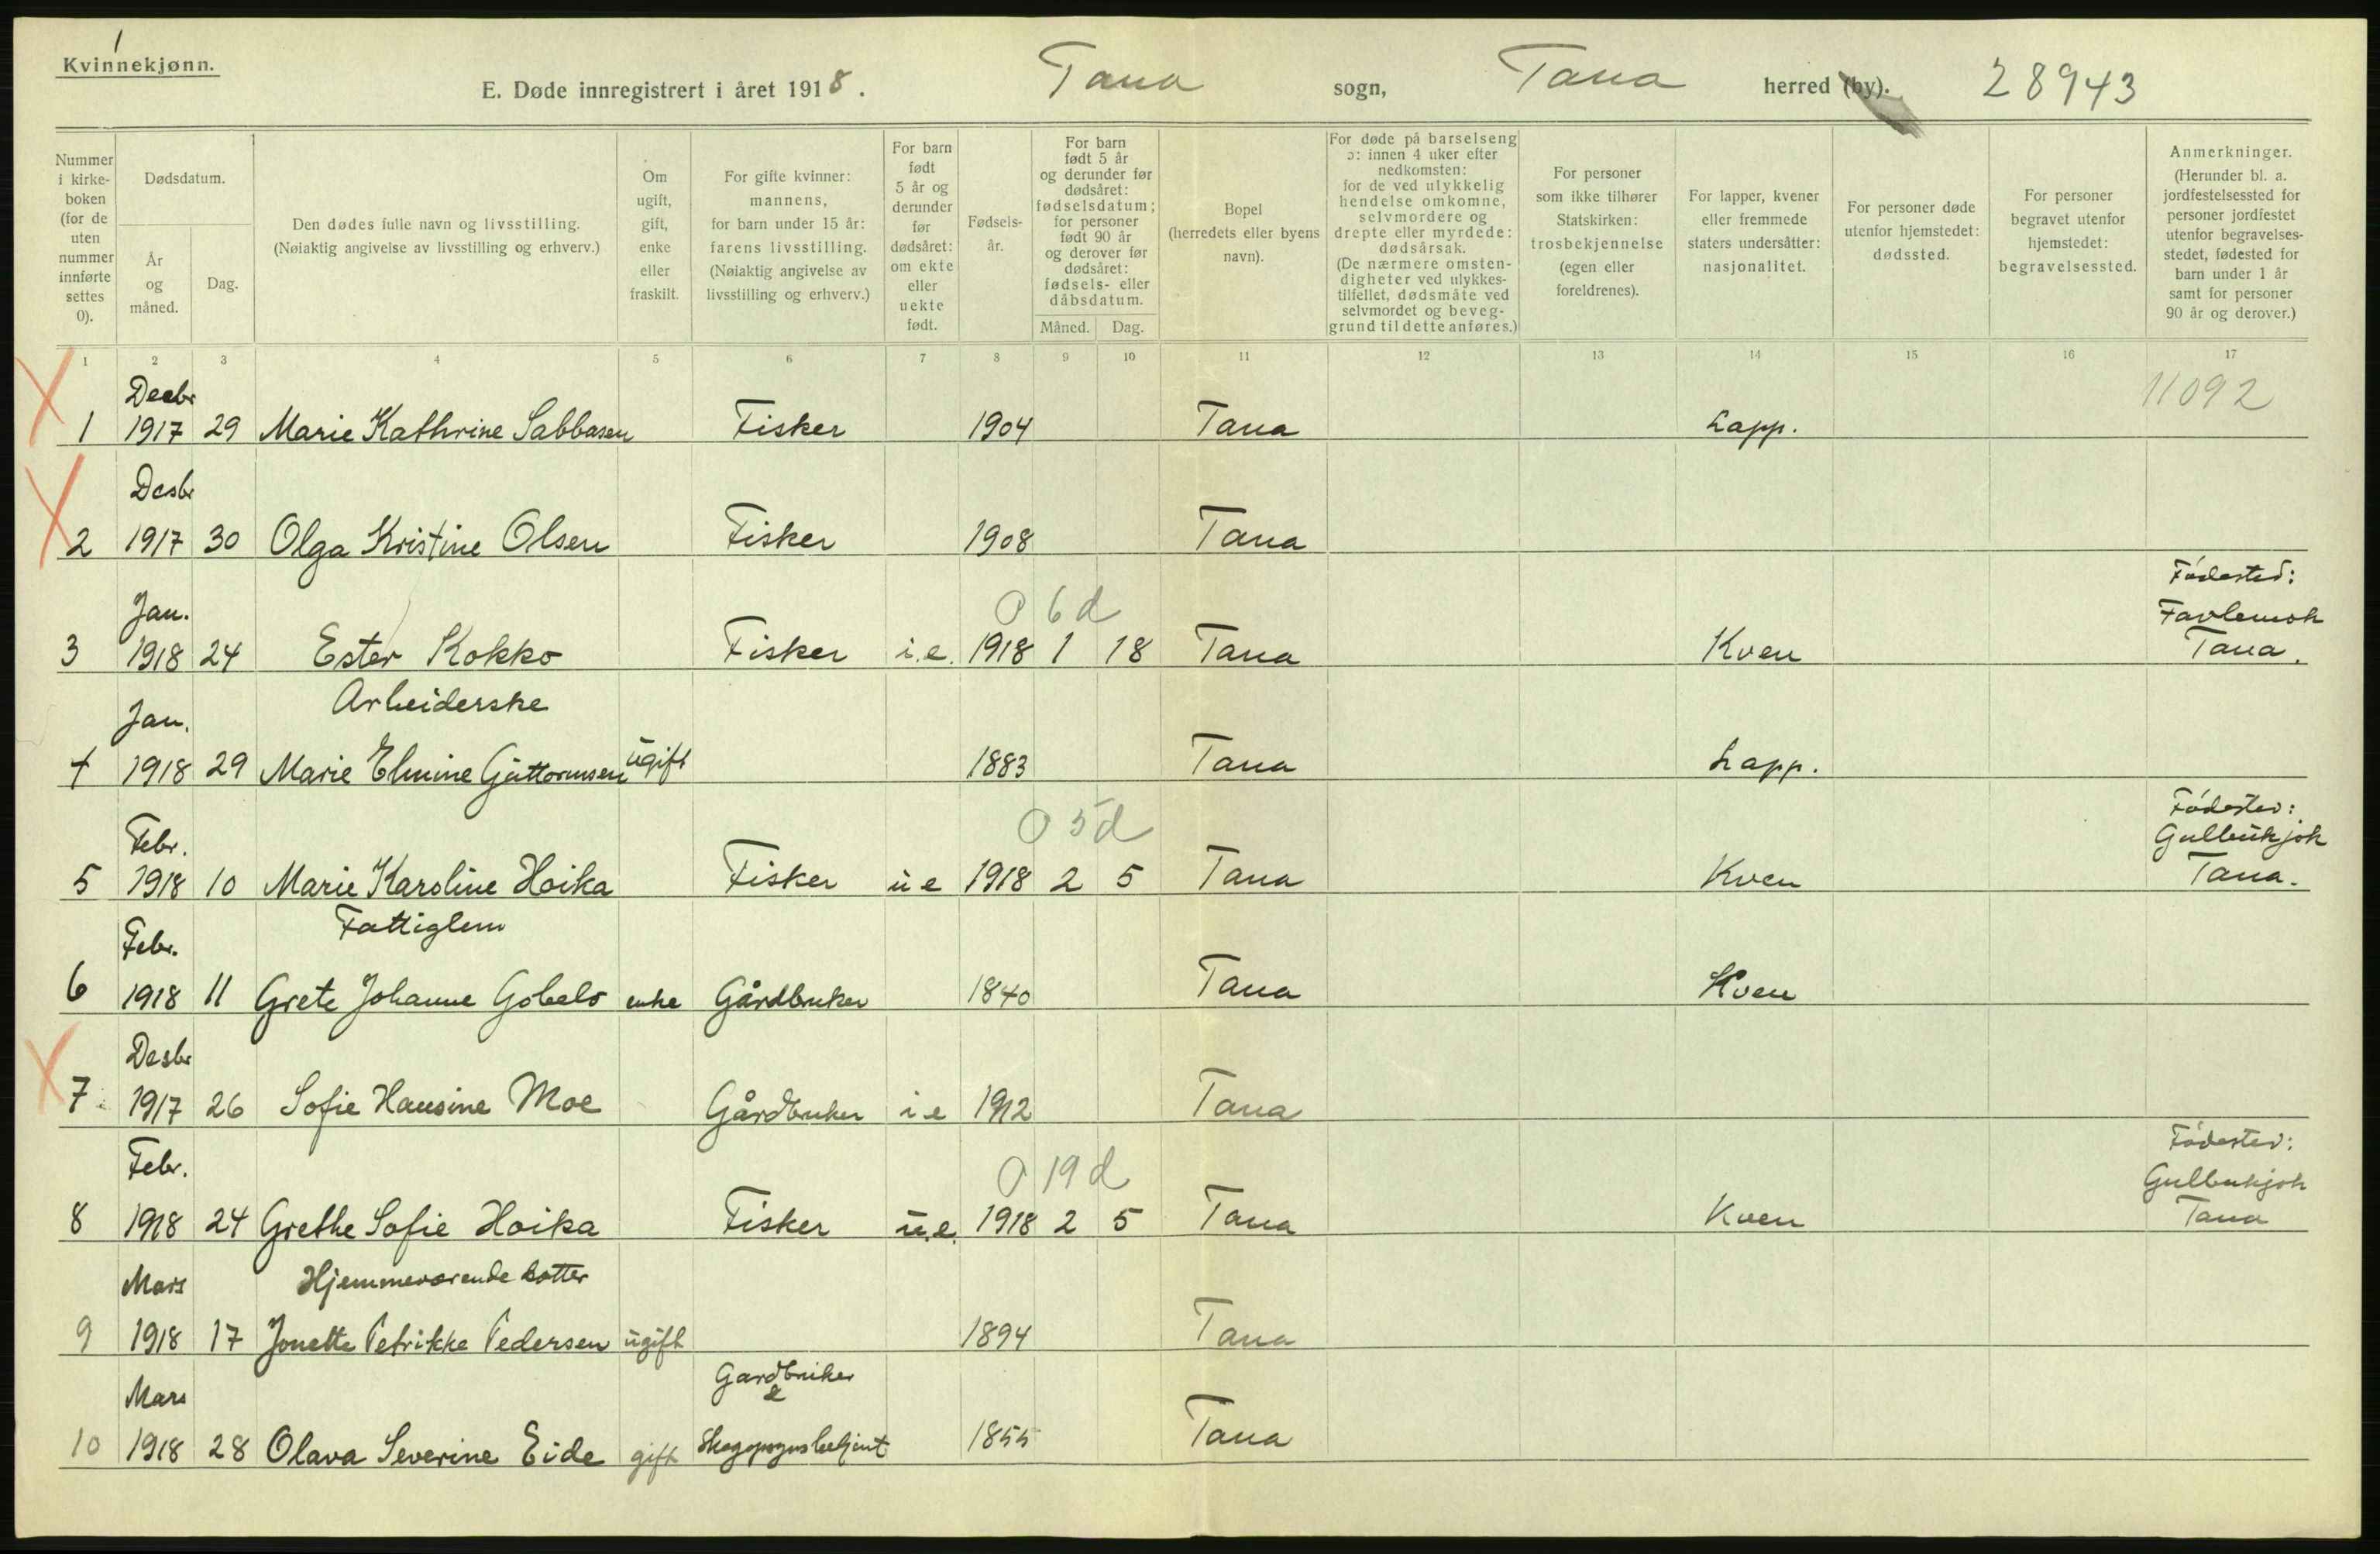 1
Kvinnekjønn.
E. Døde innregistrert i året 1918. Tana sogn, Tana herred (by). 28943
Nummer i kirke-boken (for de uten nummer innførte settes 0).
Dødsdatum.
År og måned.
Dag.
Den dødes fulle navn og livsstilling.
(Nøiaktig angivelse av livsstilling og erhverv.)
Om ugift, gift, enke eller fraskilt.
For gifte kvinner: mannens, for barn under 15 år: farens livsstilling. (Nøiaktig angivelse av livsstilling og erhverv.)
For barn født 5 år og derunder før dødsåret: om ekte eller uekte født.
Fødsels-år.
For barn født 5 år og derunder før dødsåret: fødselsdatum; for personer født 90 år og derover før dødsåret: fødsels- eller dåbsdatum.
Måned. Dag.
Bopel (herredets eller byens navn).
For døde på barselseng ɔ: innen 4 uker efter nedkomsten: for de ved ulykkelig hendelse omkomne, selvmordere og drepte eller myrdede: dødsårsak. (De nærmere omsten-digheter ved ulykkes-tilfellet, dødsmåte ved selvmordet og beveg-grund til dette anføres.)
For personer som ikke tilhører Statskirken: trosbekjennelse (egen eller foreldrenes).
For lapper, kvener eller fremmede staters undersåtter: nasjonalitet.
For personer døde utenfor hjemstedet: dødssted.
For personer begravet utenfor hjemstedet: begravelsessted.
Anmerkninger. (Herunder bl. a. jordfestelsessted for personer jordfestet utenfor begravelses-stedet, fødested for barn under 1 år samt for personer 90 år og derover.)
1 2 3 4 5 6 7 8 9 10 11 12 13 14 15 16 17
Decbr 11092
1 1917 29 Marie Kathrine Sabbasen Fisker 1904 Tana Lapp.
Desbr
2 1917 30 Olga Kristine Olsen Fisker 1908 Tana
Fødested:
Jan. 0 6 d Favlemok
3 1918 24 Ester Kokko Fisker i.e. 1918 1 18 Tana Kven Tana.
Jan. Arbeiderske
4 1918 29 Marie Elmine Guttormsen ugift 1883 Tana Lapp.
Fødested:
Febr. 0 5 d Gulbukjok
5 1918 10 Marie Karoline Hoika Fisker u e 1918 2 5 Tana Kven Tana.
Febr. Fattiglem
6 1918 11 Grete Johanne Gobelo enke Gårdbruker 1840 Tana Kven
Desbr
7 1917 26 Sofie Hansine Moe Gårdbruker i e 1912 Tana
Fødested:
Febr. 0 19 d Gulbukjok
8 1918 24 Grethe Sofie Hoika Fisker u.e. 1918 2 5 Tana Kven Tana
Mars Hjemmeværende datter
9 1918 17 Jonette Petrikke Pedersen ugift 1894 Tana
Mars Gardbruker &
10 1918 28 Olava Severine Eide gift Skogopsynsbetjent 1855 Tana